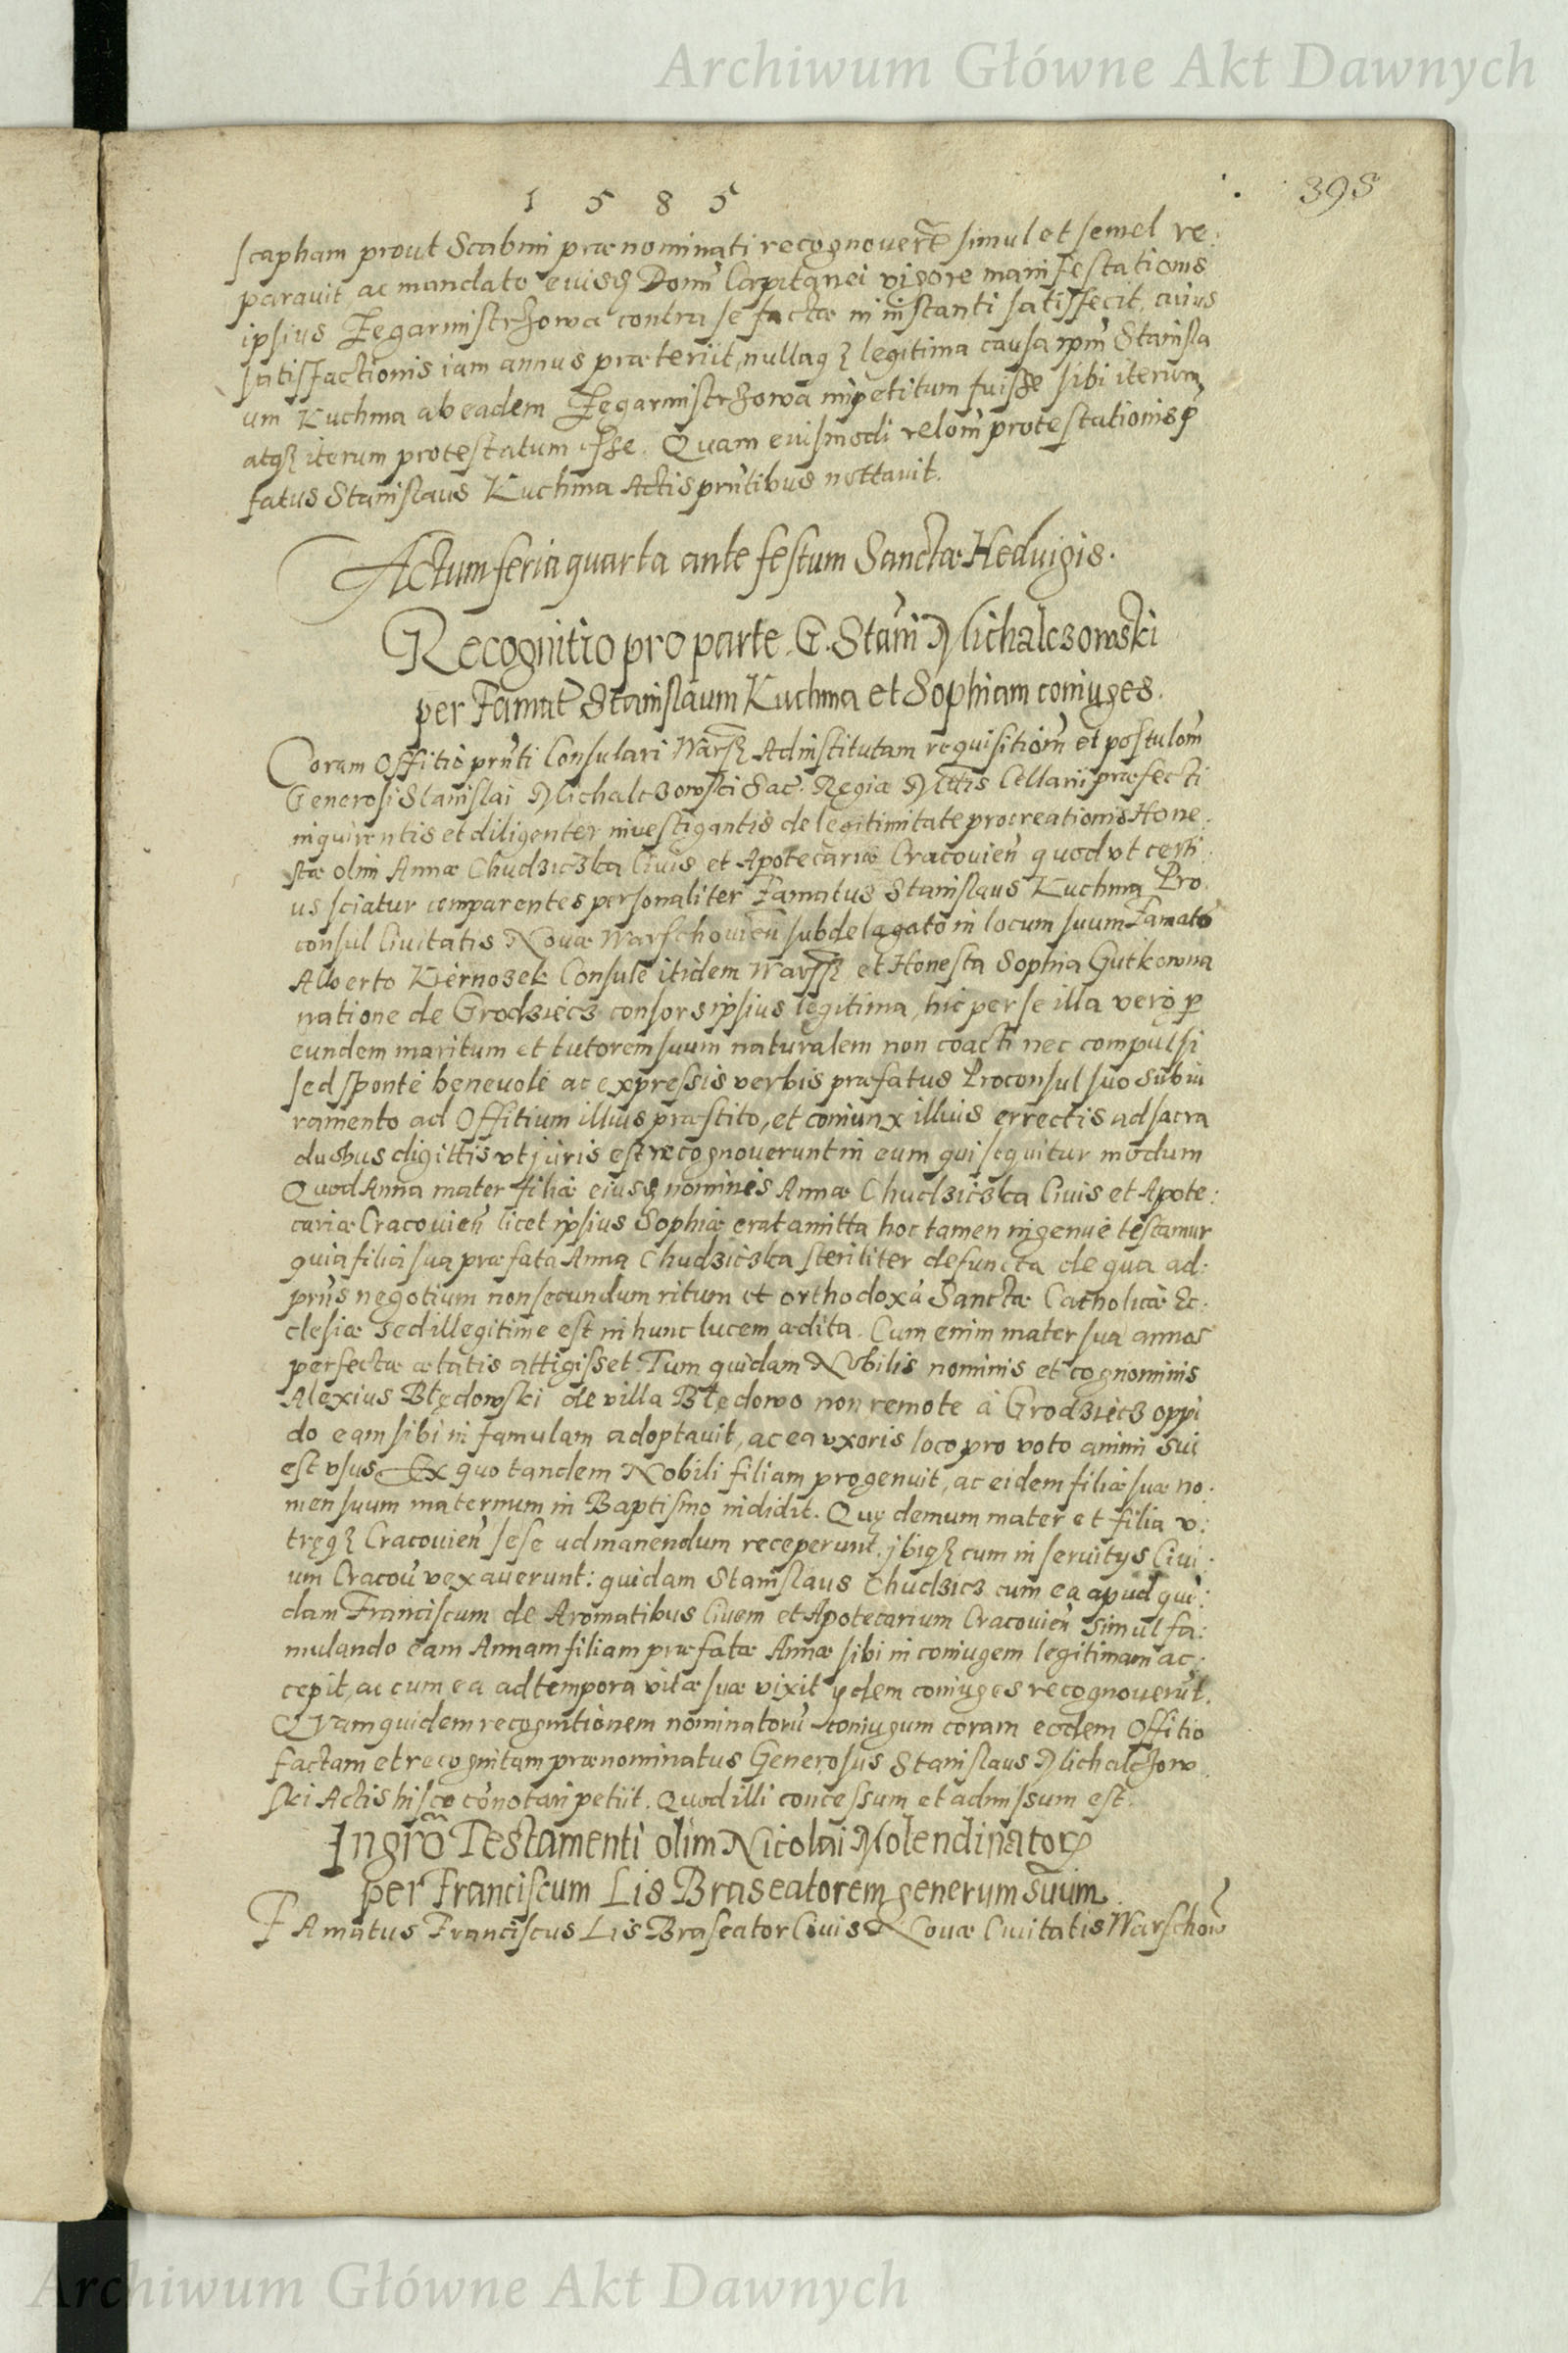 Archiwum Główne Akt Dawnych
1 5 8 5
395
scapham prout Scabini prænominati recognouerũt simul et semel re:
parauit ac mandato eiusq Domĩ Capitanei vigore manifestationis
ipsius Zegarmistrzowa contra se factæ in instanti satisfecit, cuius
satisfactionis iam annus præteriit, nullaqz legitima causa ipm̃ Stanisla
um Kuchma ab eadem Zegarmistrzowa impetitum fuisse sibi iterum
atqz iterum protestatum esse. Quam eiusmodi relom̃ protestationis p
fatus Stanislaus Kuchma Actis prñtibus nottauit.
Actum feria quarta ante festum Sanctæ Heduigis.
Recognitio pro parte G. Stañi Michalczowski
per Famat Stanislaum Kuchma et Sophiam coniuges.
Coram Offitio prñti Consulari Warss Ad institutam requisitiom̃ et postulom̃
Generosi Stanislai Michalczowski Sac. Regiæ Mttis Cellarii præfecti
inquirentis et diligenter inuestigantis de legitimitate procreationis Hone:
stæ olim Annæ Chudziczka Ciuis et Apotecariæ Cracouien̄ quod vt certi:
us sciatur comparentes personaliter Famatus Stanislaus Kuchma Pro:
consul Ciuitatis Nouæ Warschouien̄ subdelegato in locum suum Famato
Alberto Kiernozek Consule itidem Warss et Honesta Sophia Gutkowna
natione de Grodziecz consors ipsius legitima, hic per se illa vero p
eundem maritum et tutorem suum naturalem non coacti nec compulsi
sed sponte beneuole ac expressis verbis præfatus Proconsul suo sub iu
ramento ad Offitium illius præstito, et coniunx illuis errectis ad sacra
duobus digittis vt juris est recognouerunt in eum qui sequitur modum
Quod Anna mater filiæ eiusq nominis Annæ Chudzicska Ciuis et Apote:
cariæ Cracouien̄ licet ipsius Sophiæ erat amitta hoc tamen ingenue testamur
quia filia sua præfata Anna Chudzicska steriliter defuncta de qua ad:
prñs negotium non secundum ritum et orthodoxã Sanctæ Catholicæ Ec:
clesiæ sed illegitime est in hunc lucem ædita. Cum enim mater sua annos
perfectæ ætatis attigisset. Tum quidam Nobilis nominis et cognominis
Alexius Błędowski de villa Błędowo non remote a Grodziecz oppi
do eam sibi in famulam adoptauit, ac ea vxoris loco pro voto animi sui
est vsus. Ex quo tandem Nobili filiam progenuit, ac eidem filiæ suæ no:
men suum maternum in Baptismo indidit. Quę demum mater et filia v:
tręqz Cracouien̄ sese ad manendum receperunt. jbiqz cum in seruitys Ciui:
um Cracou̅ vexauerunt: quidam Stanislaus Chudzicz cum ea apud qui:
dam Franciscum de Aromatibus Ciuem et Apotecarium Cracouien̄ simul fa:
mulando eam Annam filiam præfatæ Annæ sibi in coniugem legitimam ac:
cepit, ac cum ea ad tempora vitæ suæ vixit ydem coniuges recognouerũt.
Quam quidem recognitionem nominatorũ coniugum coram eodem Offitio
factam et recognitam prænominatus Generosus Stanislaus Michalczow
ski Actis hisce conotari petiit. Quod illi concessum et admissum est.
Ingrõ Testamenti olim Nicolai Molendinatorp
per Franciscum Lis Braseatorem generum suum.
FAmatus Franciscus Lis Braseator Ciuis Nouæ Ciuitatis Warschow
Archiwum Główne Akt Dawnych